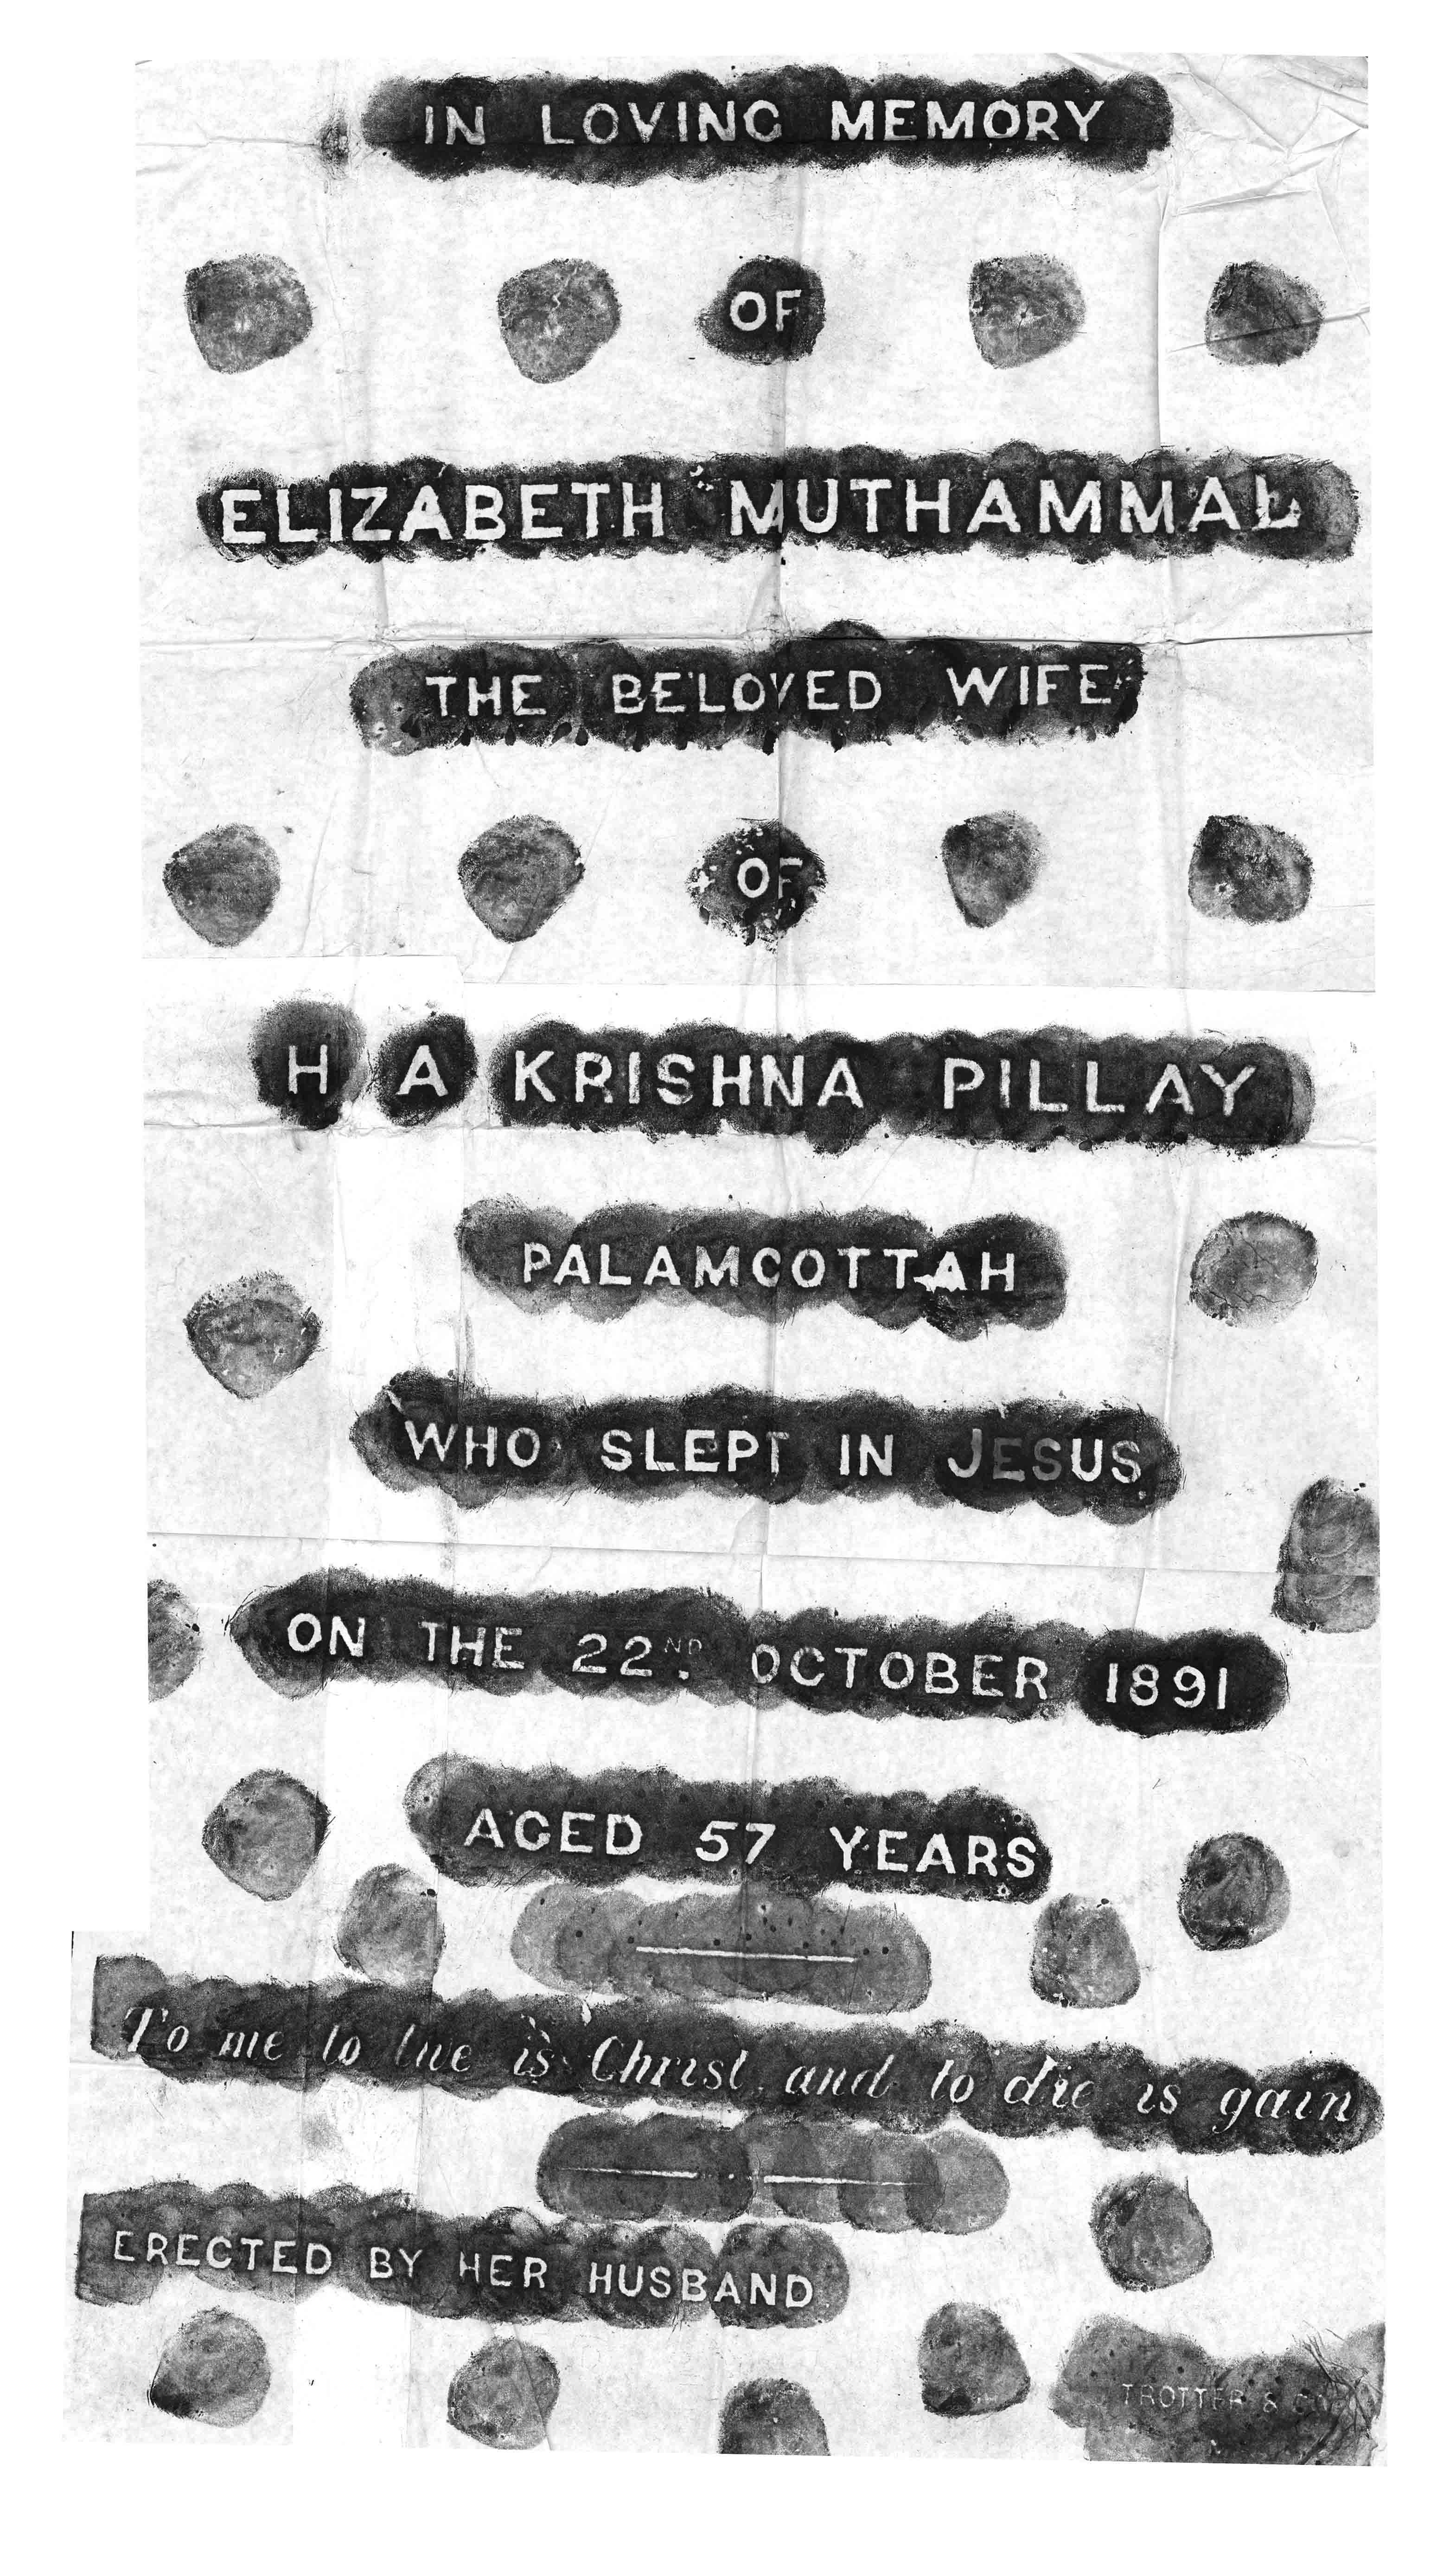 IN LOVING MEMORY
OF
ELIZABETH MUTHAMMAL
THE BELOVED WIFE
OF
H A KRISHNA PILLAY
PALAMCOTTAH
WHO SLEPT IN JESUS
ON THE 22ND. OCTOBER 1891
AGED 57 YEARS
To me to live is Christ and to die is gain
ERECTED BY HER HUSBAND
TROTTER & CO